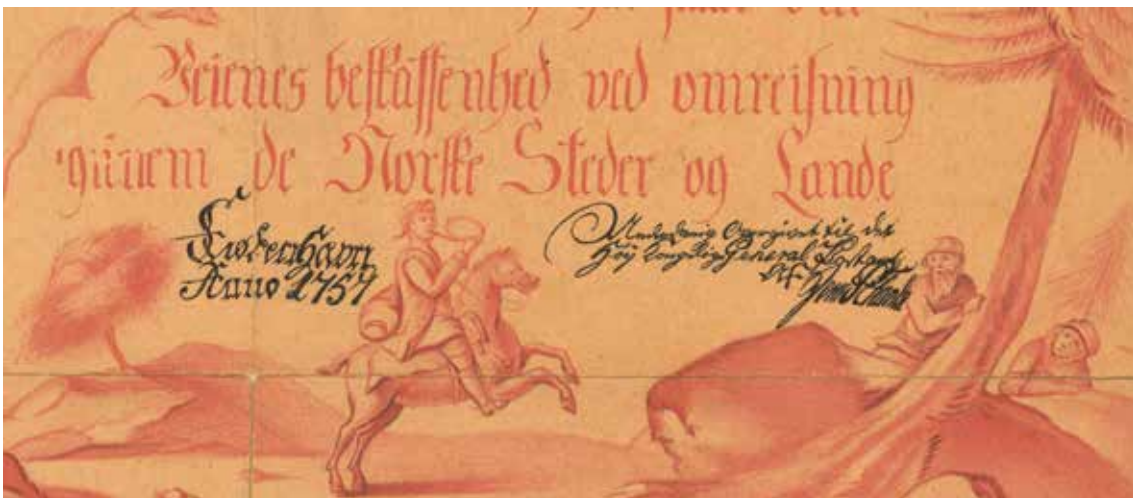 Veienes beskaffenhed ved omreisning
de Norske Steder og Lande
Anno 1757
Underdanig Overgivet til det
Høy General Postamt
Af